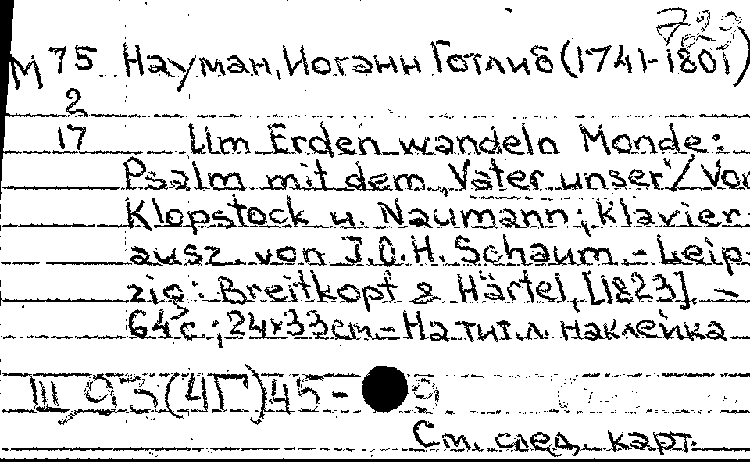 723
М 75 Науман, Иоганн Готлиб (1741-1801)
2
17 Um Erden wandeln Monde:
Psalm mit dem „Vater unser“/ Von
Klopstock u. Naumann; Klavier-
ausz. von J.O.H. Schaum. - Leip-
zig: Breitkopf & Härtel, [1823]. -
64 с.; 24x33 cm. - На тит. л. наклейка
III 93(4Г)45- 9
См. след. карт.